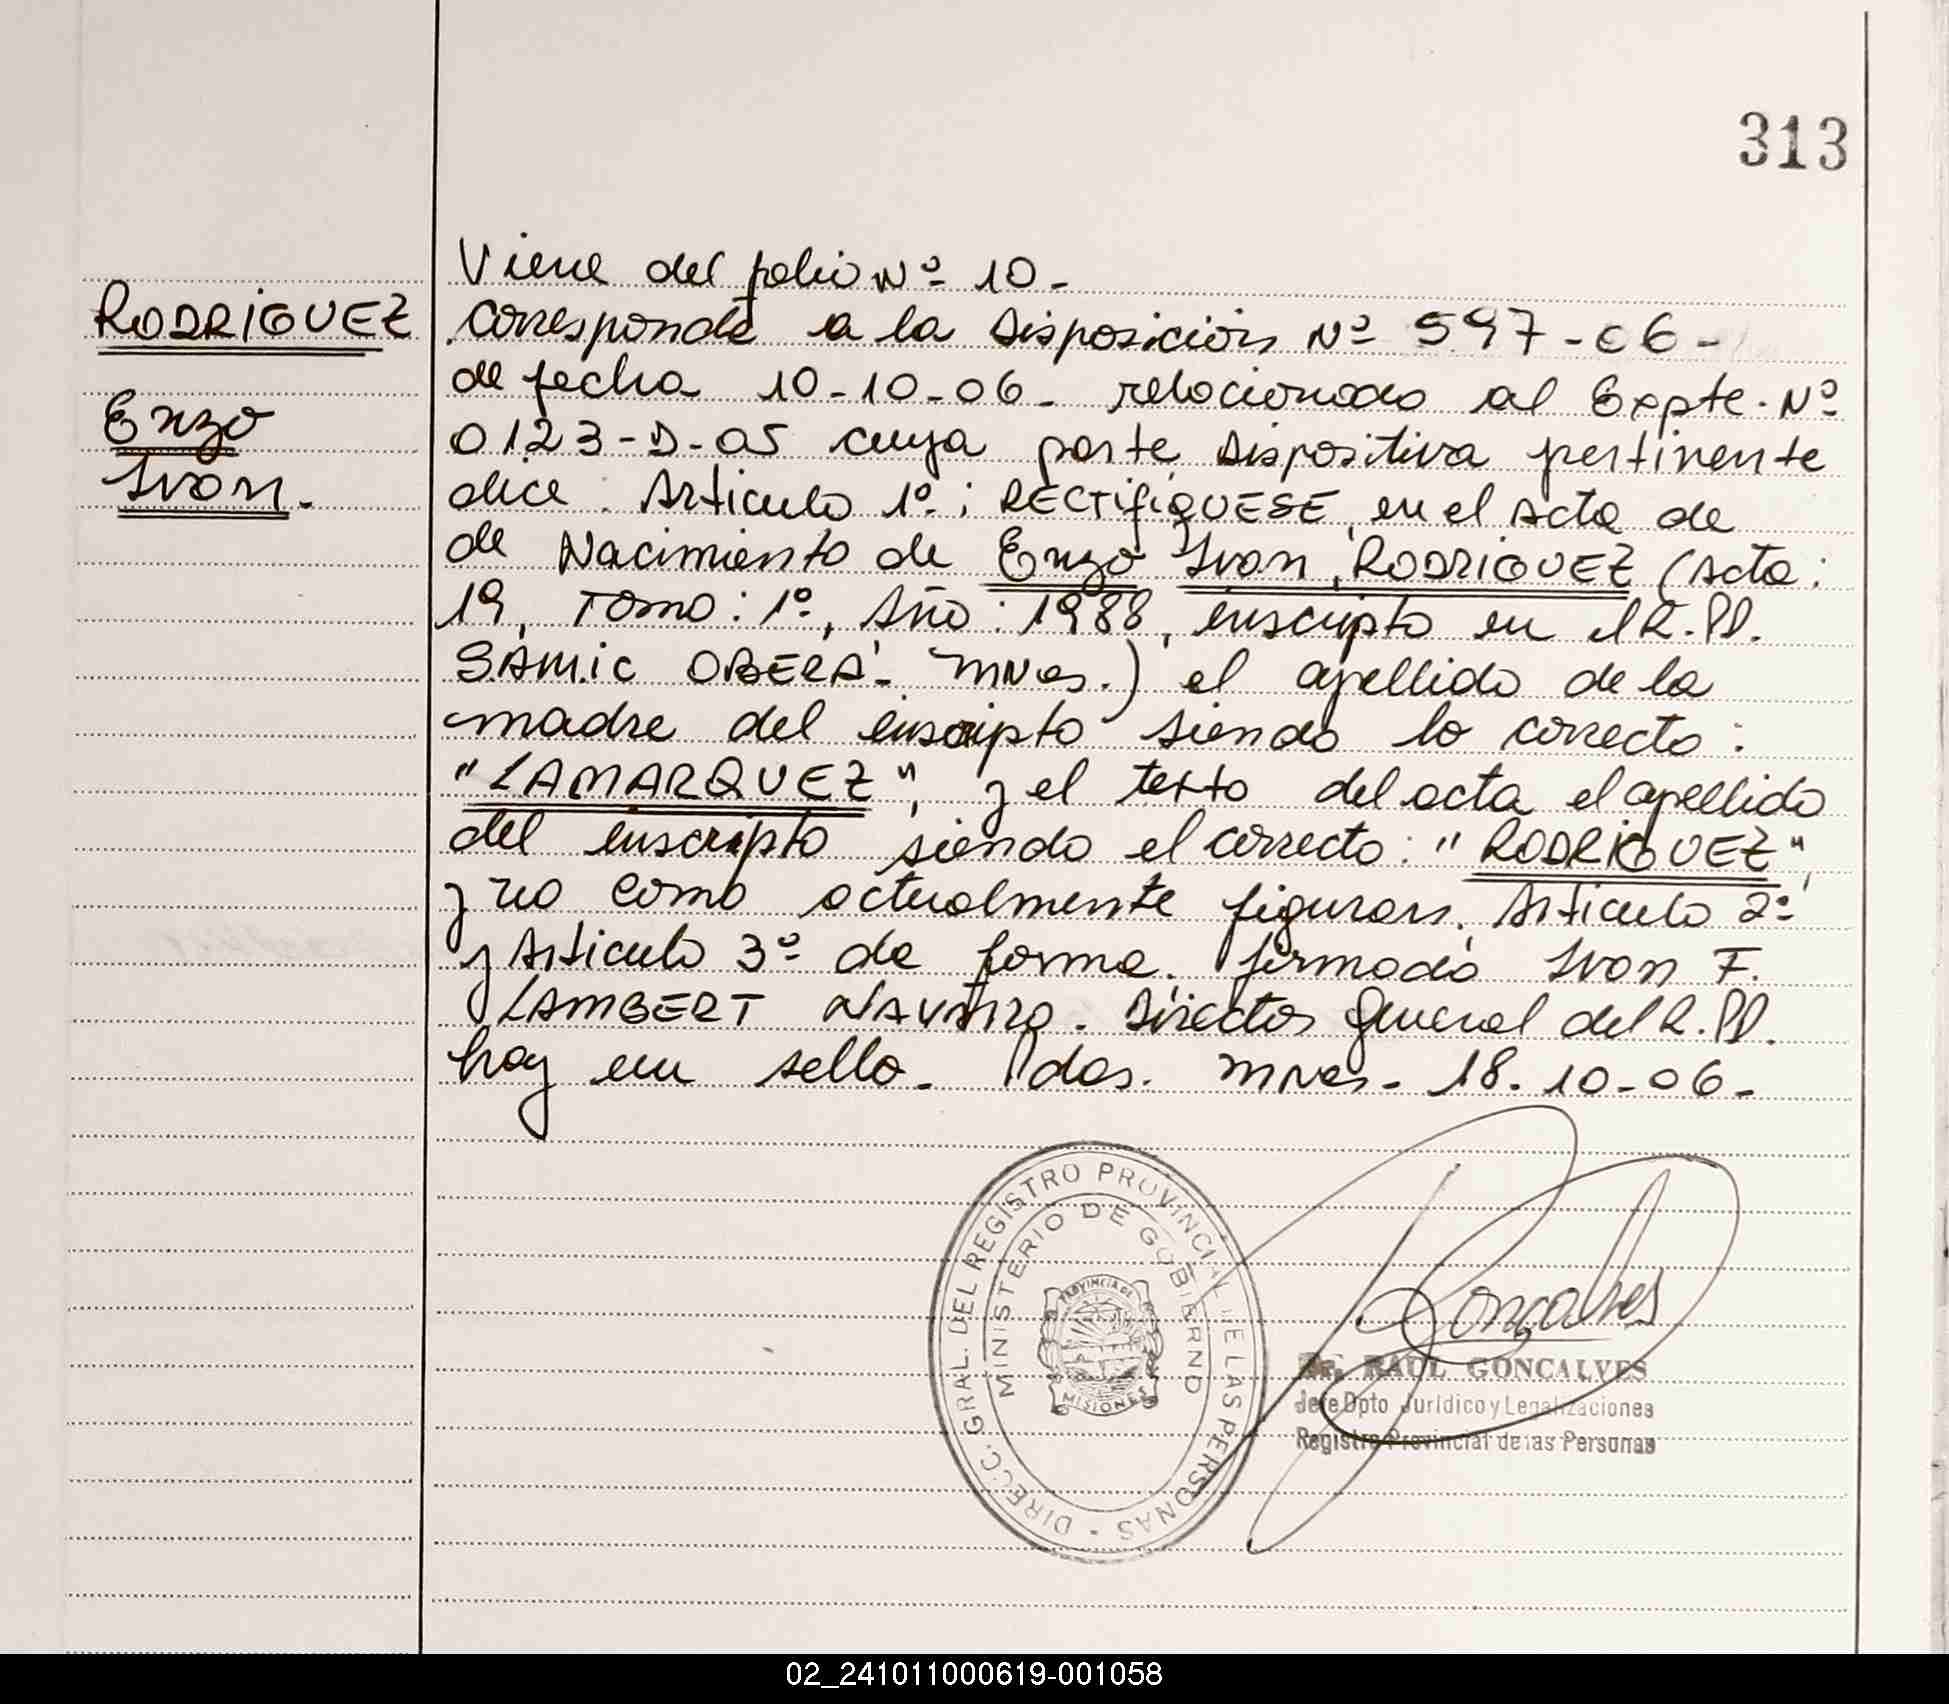 313
RODRIGUEZ
Enzo
Ivan.
Viene del folio Nº 10-
Corresponde a la Disposición Nº 597-06-
de fecha 10-10-06- relacionado al Expte. Nº
0123-D-05 cuya parte dispositiva pertinente
dice: Articulo 1º: RECTIFIQUESE, en el acta de
de Nacimiento de Enzo Ivan, RODRIGUEZ (Acta:
19, Tomo: 1º, Año: 1988, inscripto en el R.PP.
SAMIC OBERÁ- Mnes.) el apellido de la
madre del inscripto siendo lo correcto:
"LAMARQUEZ", y el texto del acta el apellido
del inscripto siendo el correcto: "RODRIGUEZ",
y no como actualmente figuran. Articulo 2º
y Articulo 3º de forma. firmado Ivan F.
LAMBERT NAVARRO. Director General del R.PP.
hay un sello. Pdas. Mnes- 18-10-06-
DIRECC. GRAL. DEL REGISTRO PROVINCIAL DE LAS PERSONAS -
MINISTERIO DE GOBIERNO
PROVINCIA DE
MISIONES
Goncalves
Dr. RAUL GONCALVES
Jefe Dpto Jurídico y Legalizaciones
Registro Provincial de las Personas
02_241011000619-001058